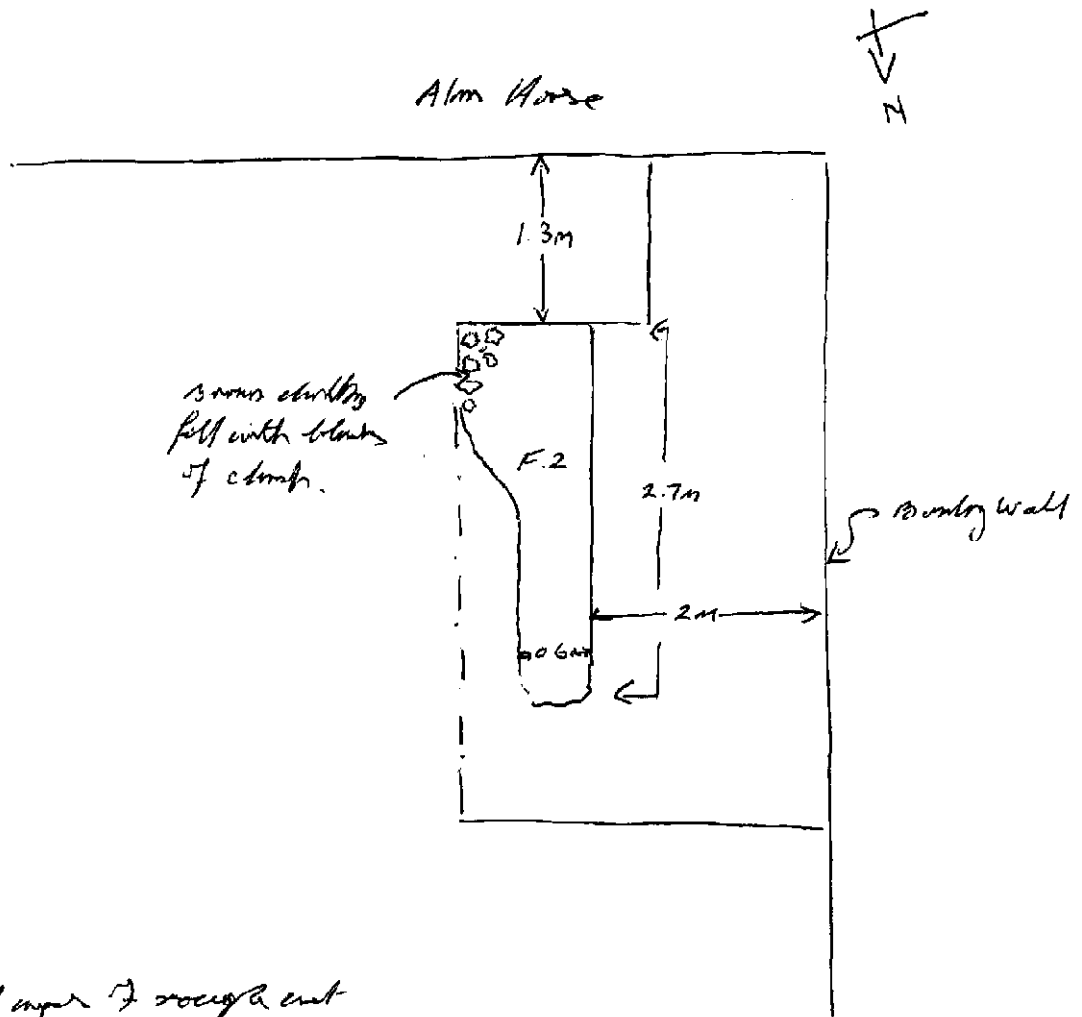 N
Alm House
1.3m
Brown chalky
fill with blocks
of chalk.
F.2
2.7m
Boundry Wall
2m
0.6m
of rough cut